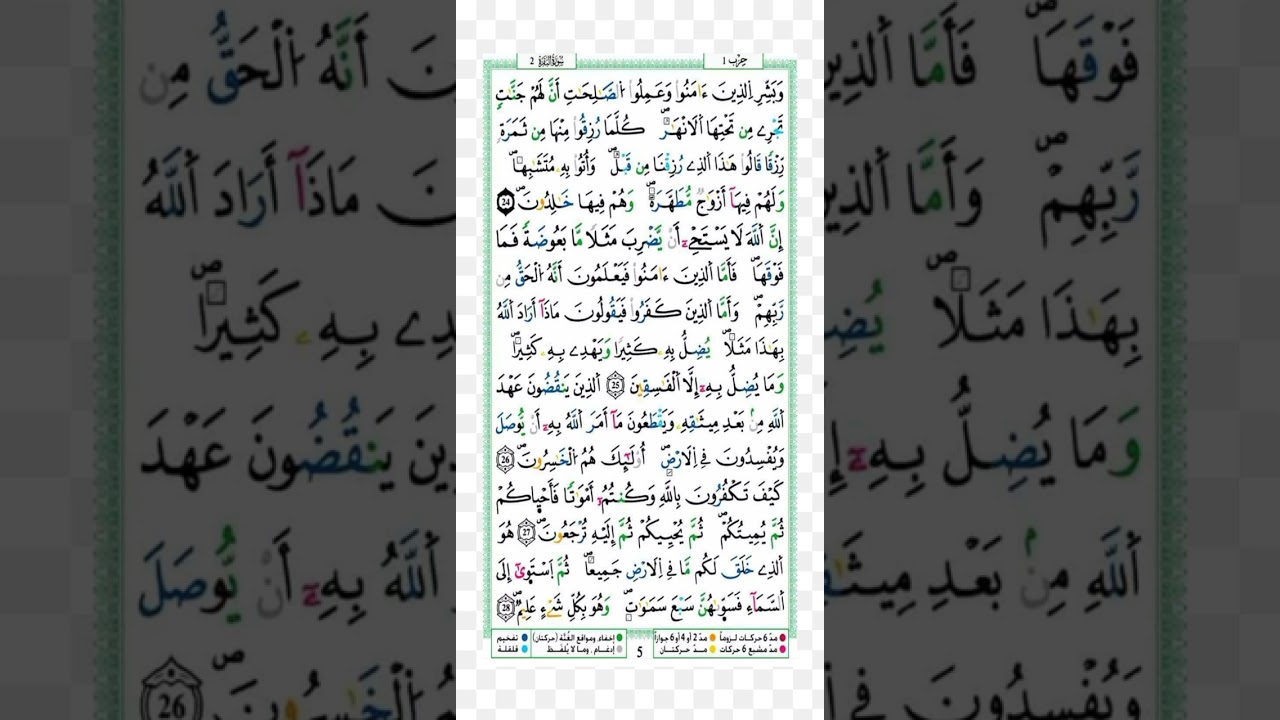 حِزْب 1
سُورَةُ البَقَرَة 2
وَبَشِّرِ اِلذِينَ ءَامَنُواْ وَعَمِلُواْ اُلصَّٰلِحَٰتِ أَنَّ لَهُمْ جَنَّٰتٖ
تَجْرِے مِن تَحْتِهَا اَلَانْهَٰرُۖ كُلَّمَا رُزِقُواْ مِنْهَا مِن ثَمَرَةٖ
رِّزْقاٗ قَالُواْ هَٰذَا اَلذِے رُزِقْنَا مِن قَبْلُۖ وَأُتُواْ بِهِۦ مُتَشَٰبِهاٗۖ
وَلَهُمْ فِيهَآ أَزْوَٰجٞ مُّطَهَّرَةٞۖ وَهُمْ فِيهَا خَٰلِدُونَۖ 24
إِنَّ اَللَّهَ لَا يَسْتَحْيِۦٓ أَنْ يَّضْرِبَ مَثَلاٗ مَّا بَعُوضَةٗ فَمَا
فَوْقَهَاۖ فَأَمَّا اَلذِينَ ءَامَنُواْ فَيَعْلَمُونَ أَنَّهُ اُلْحَقُّ مِن
رَّبِّهِمْۖ وَأَمَّا اَلذِينَ كَفَرُواْ فَيَقُولُونَ مَاذَآ أَرَادَ اَللَّهُ
بِهَٰذَا مَثَلاٗۖ يُضِلُّ بِهِۦ كَثِيراٗ وَيَهْدِے بِهِۦ كَثِيراٗۖ
وَمَا يُضِلُّ بِهِۦٓ إِلَّا اَلْفَٰسِقِينَ 25 اَلذِينَ يَنقُضُونَ عَهْدَ
اَللَّهِ مِنۢ بَعْدِ مِيثَٰقِهِۦ وَيَقْطَعُونَ مَآ أَمَرَ اَللَّهُ بِهِۦٓ أَنْ يُّوصَلَ
وَيُفْسِدُونَ فِے اِلَارْضِۖ أُوْلَٰٓئِكَ هُمُ اُلْخَٰسِرُونَۖ 26
كَيْفَ تَكْفُرُونَ بِاللَّهِ وَكُنتُمُۥٓ أَمْوَٰتاٗ فَأَحْيٰكُمْ
ثُمَّ يُمِيتُكُمْۖ ثُمَّ يُحْيِيكُمْ ثُمَّ إِلَيْهِ تُرْجَعُونَۖ 27 هُوَ
اَلذِے خَلَقَ لَكُم مَّا فِے اِلَارْضِ جَمِيعاٗۖ ثُمَّ اَسْتَوَىٰٓ إِلَى
اَلسَّمَآءِ فَسَوَّىٰهُنَّ سَبْعَ سَمَٰوَٰتٖۖ وَهُوَ بِكُلِّ شَےْءٍ عَلِيمٞۖ 28
مدّ 6 حركات لـزوماً مدّ 2 أو 4 أو 6 جوازاً إخفاء، ومواقع الغُنَّة (حركتان) تفخيم
مدّ مشبع 6 حركات مـدّ حركتـان إدغـام ، ومـا لا يُلفَـظ قلقلة
5